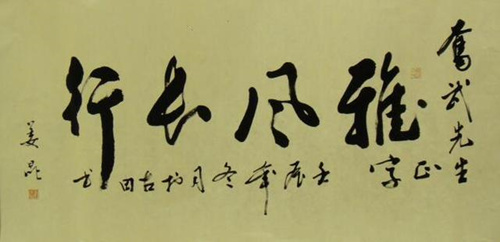 奮武先生
正字
雅风长行
壬辰年冬月於古田
姜昆